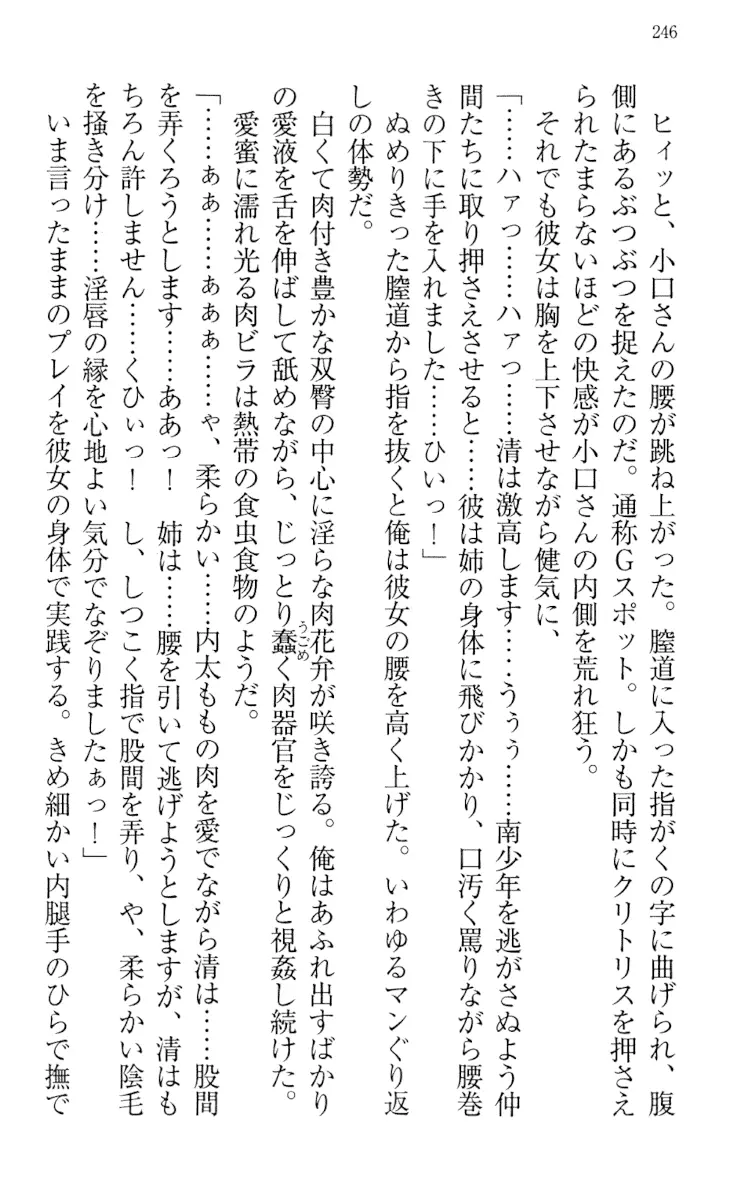 246
ヒィッと、小口さんの腰が跳ね上がった。膣道に入った指がくの字に曲げられ、腹
側にあるぶつぶつを捉えたのだ。通称Gスポット。しかも同時にクリトリスを押さえ
られたまらないほどの快感が小口さんの内側を荒れ狂う。
それでも彼女は胸を上下させながら健気に、
「……ハァっ……ハァっ……清は激高します……うぅぅ……南少年を逃がさぬよう仲
間たちに取り押さえさせると……彼は姉の身体に飛びかかり、口汚く罵りながら腰巻
きの下に手を入れました……ひいっ！」
ぬめりきった膣道から指を抜くと俺は彼女の腰を高く上げた。いわゆるマンぐり返
しの体勢だ。
白くて肉付き豊かな双臀の中心に淫らな肉花弁が咲き誇る。俺はあふれ出すばかり
の愛液を舌を伸ばして舐めながら、じっとり蠢く肉器官をじっくりと視姦し続けた。
愛蜜に濡れ光る肉ビラは熱帯の食虫食物のようだ。
「……ぁぁ……ぁぁぁ……ゃ、柔らかい……内太ももの肉を愛でながら清は……股間
を弄くろうとします……ああっ！　姉は……腰を引いて逃げようとしますが、清はも
ちろん許しません……くひぃっ！　し、しつこく指で股間を弄り、や、柔らかい陰毛
を掻き分け……淫唇の縁を心地よい気分でなぞりましたぁっ！」
いま言ったままのプレイを彼女の身体で実践する。きめ細かい内腿手のひらで撫で